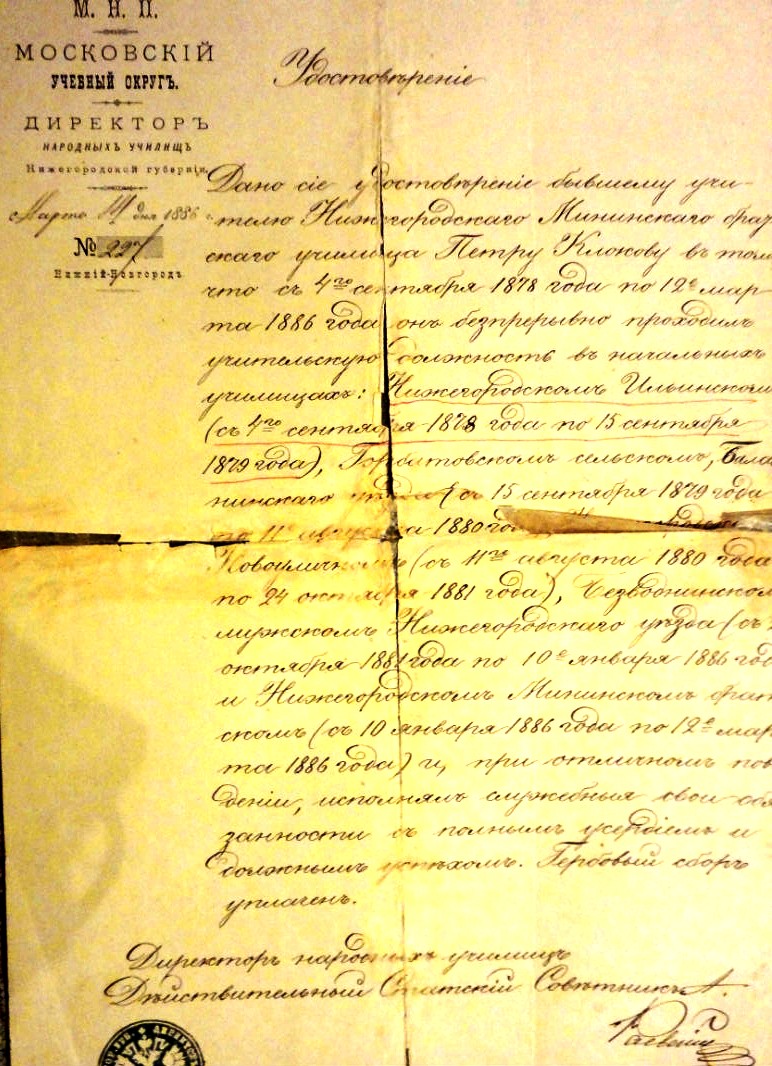 М. Н. П.
МОСКОВСКІЙ
УЧЕБНЫЙ ОКРУГЪ.
ДИРЕКТОРЪ
НАРОДНЫХЪ УЧИЛИЩЪ
Нижегородской губерніи.
Марта 14 дня 1886 г.
№ 227
Нижній-Новгородъ
Удостовѣреніе
Дано сіе удостовѣреніе бывшему учи-
телю Нижегородскаго Мининскаго
скаго училища Петру Клокову въ томъ
что съ 4го сентября 1878 года по 12е мар-
та 1886 года онъ безпрерывно проходилъ
учительскую должность въ начальныхъ
училищахъ: Нижегородскомъ Ильинскомъ
(съ 4го сентября 1878 года по 15 сентября
1879 года), Горбатовскомъ сельскомъ, Бала
нинскаго уѣзда (съ 15 сентября 1879 года
по 11е августа 1880 года
Новоуличномъ (съ 11го августа 1880 года
по 24 октября 1881 года), Безводнинскомъ
мужскомъ Нижегородскаго уѣзда (съ
октября 1881 года по 10е января 1886 года
и Нижегородскомъ Мининскомъ
скомъ (съ 10 января 1886 года по 12е мар
та 1886 года) и, при отличномъ пове
деніи, исполнялъ служебныя свои обя
занности съ полнымъ усердіемъ и
должнымъ успѣхомъ. Гербовый сборъ
уплаченъ.
Директоръ народныхъ училищъ
Дѣйствительный Статскій Совѣтникъ А.